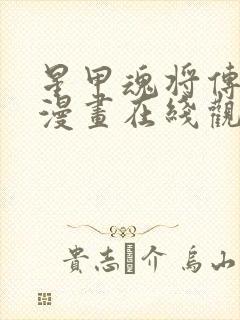 星甲魂将傳
漫畫在綫觀
貴志 介 烏山